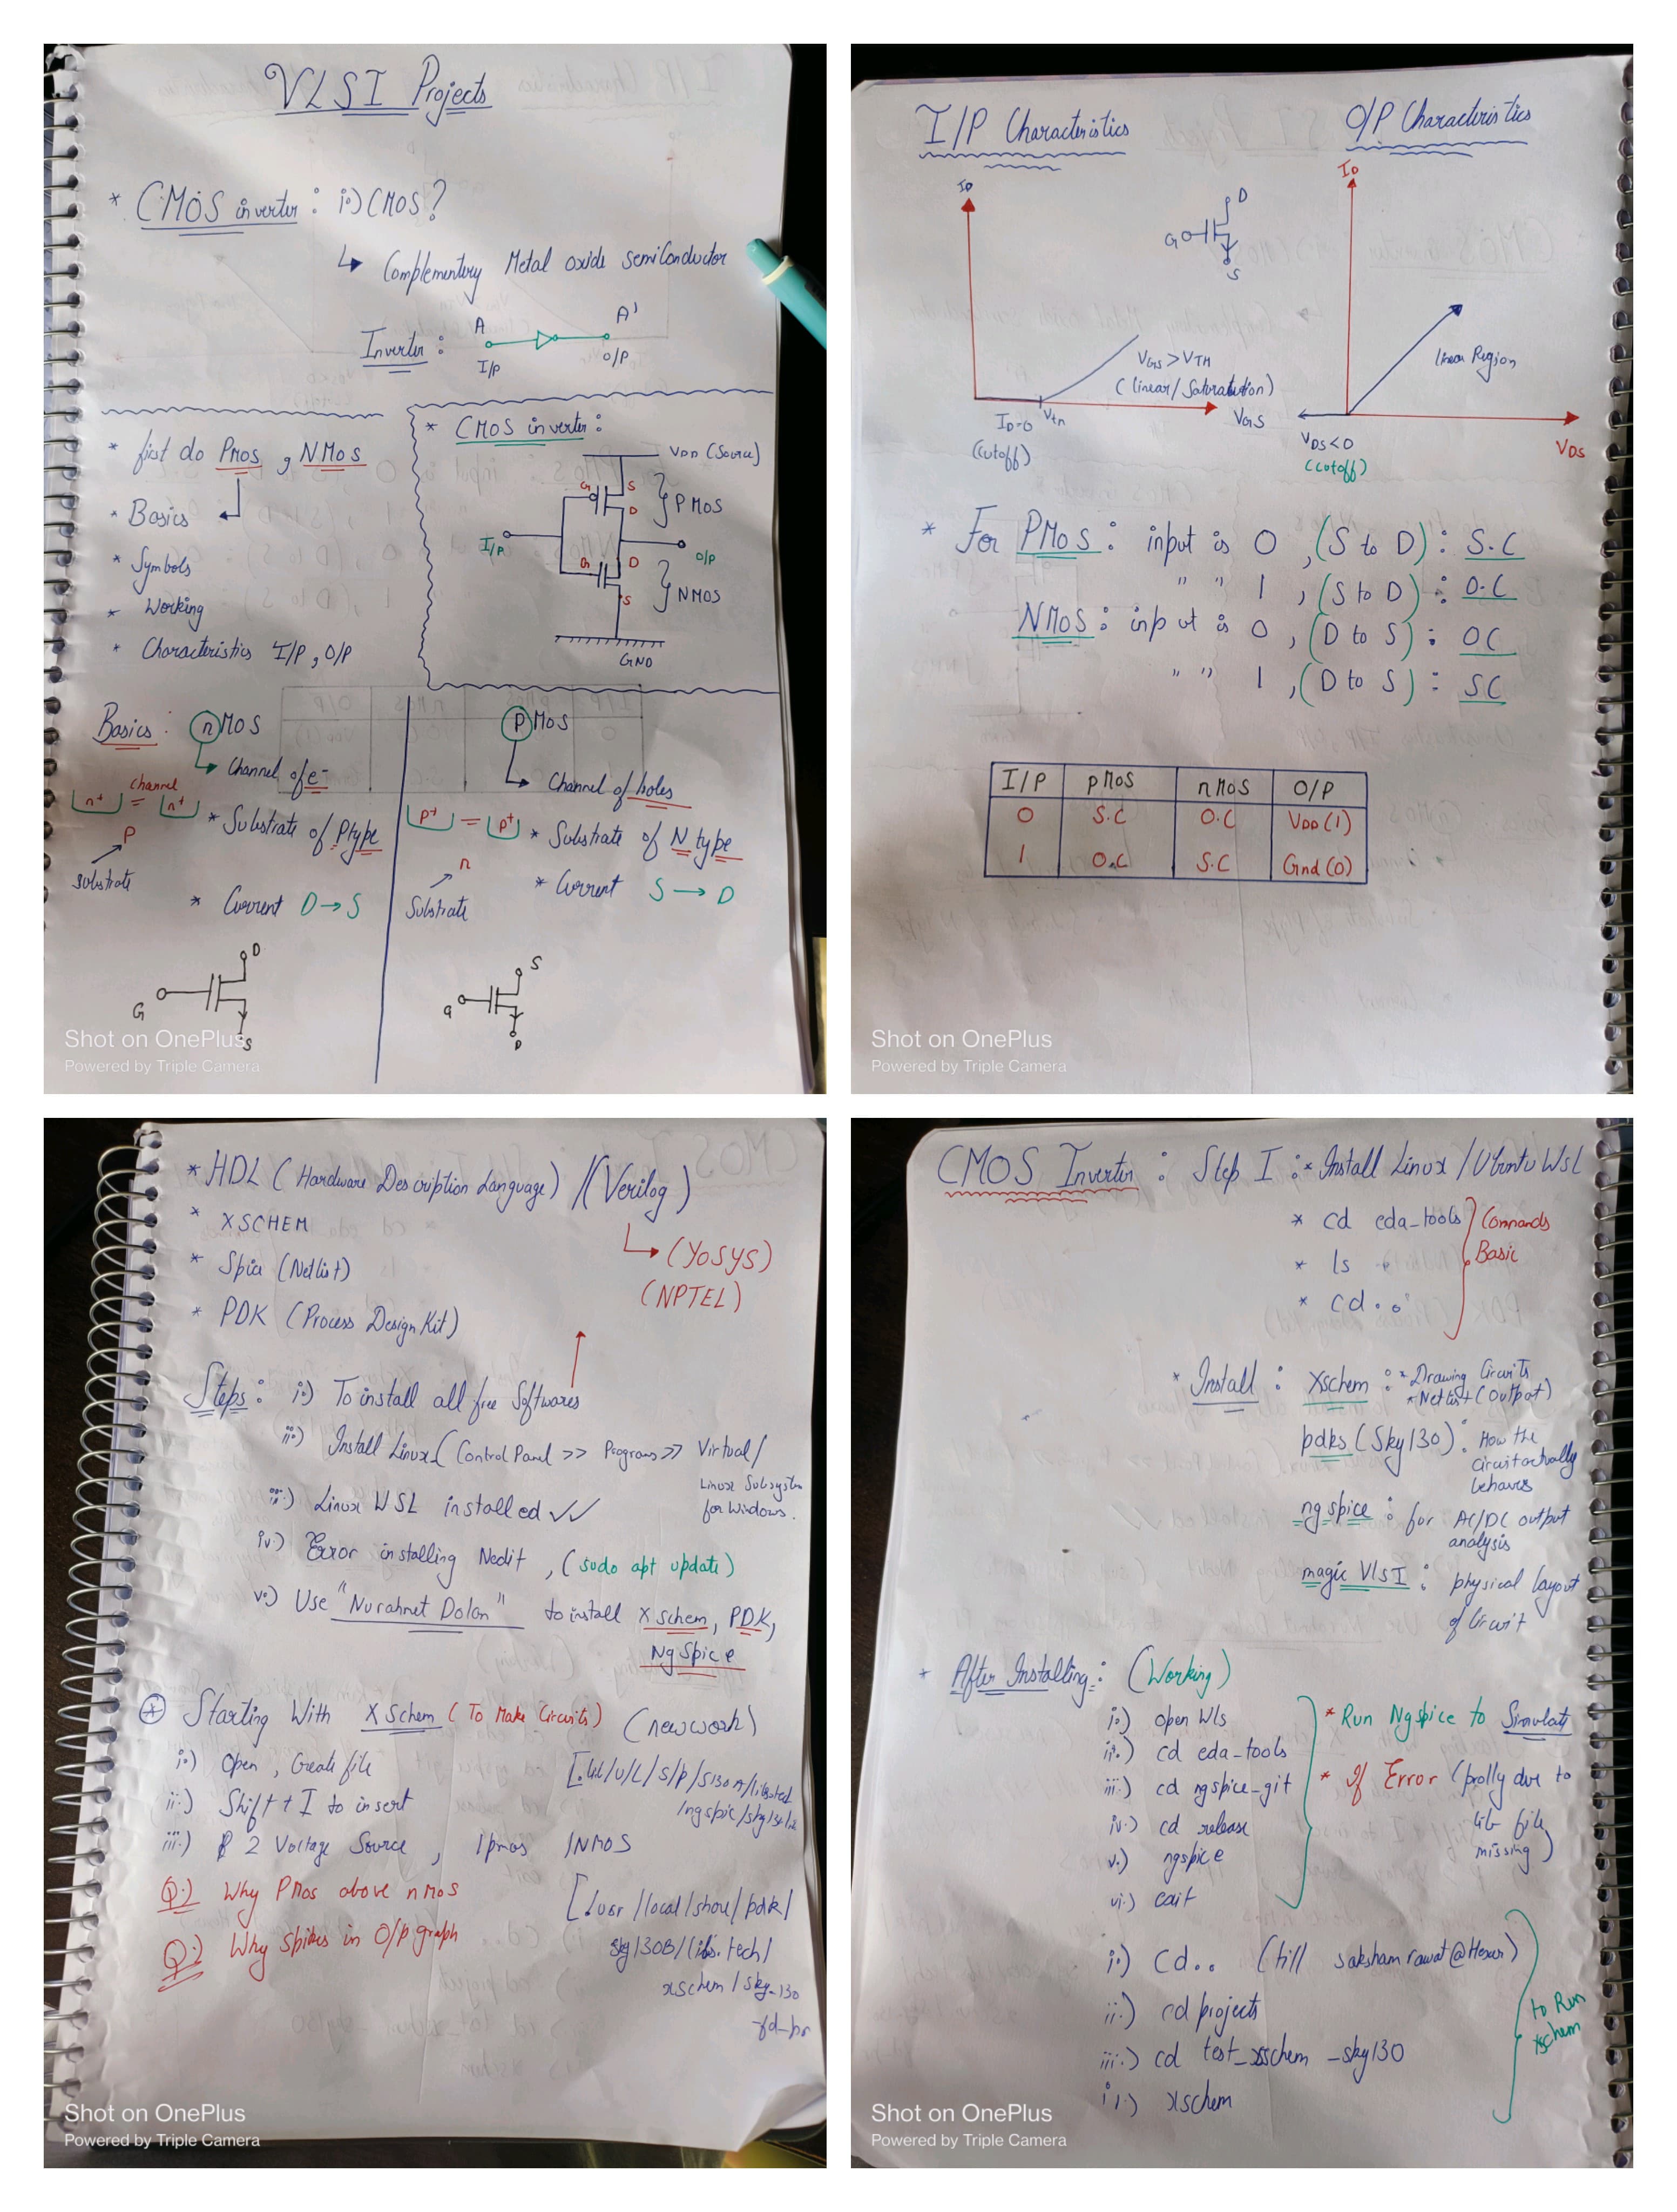 VLSI Projects
* CMOS inverter : i.) CMOS?
↳ Complementary Metal oxide semiConductor
Inverter :
A
A'
I/P
O/P
* first do PMOS, NMOS
* Basics
* Symbols
* Working
* Characteristics I/P, O/P
* CMOS inverter :
VDD (Source)
G
S
D
} PMOS
I/P
O/P
G
D
S
} NMOS
GND
Basics : nMOS
↳ Channel of e-
n+ = n+
channel
P
substrate
* Substrate of Ptype
* Current D → S
D
G
S
pMOS
↳ Channel of holes
p+ = p+
n
Substrate
* Substrate of N type
* Current S → D
S
G
D
Shot on OnePlus
Powered by Triple Camera
I/P Characteristics
O/P Characteristics
ID
D
G
S
VGS > VTH
(linear/Saturation)
ID=0
Vtn
VGS
(cutoff)
ID
linear Region
VDS<0
(cutoff)
VDS
* For PMOS : input is 0, (S to D) : S.C
" " 1, (S to D) : O.C
NMOS : input is 0, (D to S) : OC
" " 1, (D to S) : SC
I/P pMOS nMOS O/P
0 S.C O.C VDD (1)
1 O.C S.C Gnd (0)
Shot on OnePlus
Powered by Triple Camera
* HDL (Hardware Description Language) /(Verilog)
↳ (YOSYS)
(NPTEL)
* XSCHEM
* Spice (Netlist)
* PDK (Process Design Kit)
Steps : i.) To install all free Softwares
ii.) Install Linux (Control Panel >> Programs >> Virtual/
Linux Subsystem
for Windows.
iii.) Linux WSL installed ✓✓
iv.) Error installing Nedit, (sudo apt update)
v.) Use "Nurahmet Dolan" to install Xschem, PDK,
NgSpice
* Starting With XSchem (To Make Circuits) (newwork)
i.) Open, Create file
ii.) Shift + I to insert
iii.) 2 Voltage Source, 1pmos 1NMOS
Q.) Why PMos above nMos
Q.) Why spikes in O/p graph
[./usr/local/share/pdk/
sky130B/libs.tech/
xschem/sky-130
Shot on OnePlus
Powered by Triple Camera
CMOS Inverter : Step I : * Install Linux /Ubuntu WSL
* cd eda-tools
* ls
* cd..
Commands
Basic
* Install : Xschem : * Drawing Circuits
* Netlist (Output)
pdks (Sky130) : How the
circuit actually
behaves
ngspice : for AC/DC output
analysis
magic VlsI : physical layout
of Circuit
* After Installing : (Working)
i.) open Wls
ii.) cd eda-tools
iii.) cd ngspice-git
iv.) cd release
v.) ngspice
vi.) exit
* Run Ngspice to Simulate
* If Error (prolly due to
lib file
missing)
i.) Cd.. (till sakshamrawat@Hexer)
ii.) cd projects
iii.) cd test_xschem_sky130
iv.) xschem
to Run
xschem
Shot on OnePlus
Powered by Triple Camera